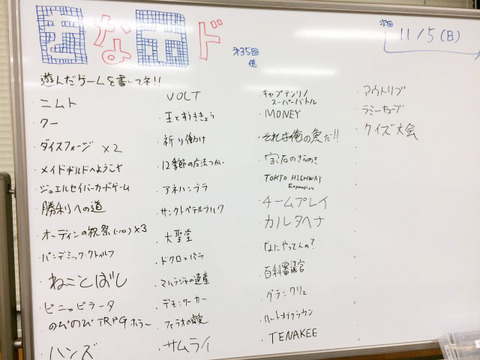 第35回
遊んだゲームを書いてネ!!
・ニムト
・クー
・ダイスフォージ ×2
・メイドギルドへようこそ
・ジュエルセイバーカードゲーム
・勝利への道
・オーディンの祝祭 ×3
・パンデミック・クトゥルフ
・ねことばし
・ピニャピラータ
・のびのびTRPGホラー
・ハンズ
・VOLT
・王とおうきょう
・祈り働け
・12季節の魔法つかい
・アネハンブラ
・サンクトペテルブルク
・大聖堂
・ドクロッパラ
・マハラジャの遺産
・デモンワーカー
・サムライ
・キャプテンリノ
スーパーバトル
・MONEY
・それは俺の魚だ!!
・宝石のきらめき
・TOKYO HIGHWAY
Expansion
・チームプレイ
・カルタヘナ
・なにやってんの?
・百科審議官
・グランクリュ
・ハートオブクラウン
・TENAKEE
次回
11/5(日)
・アウトリブ
・ラミーキューブ
・クイズ大会